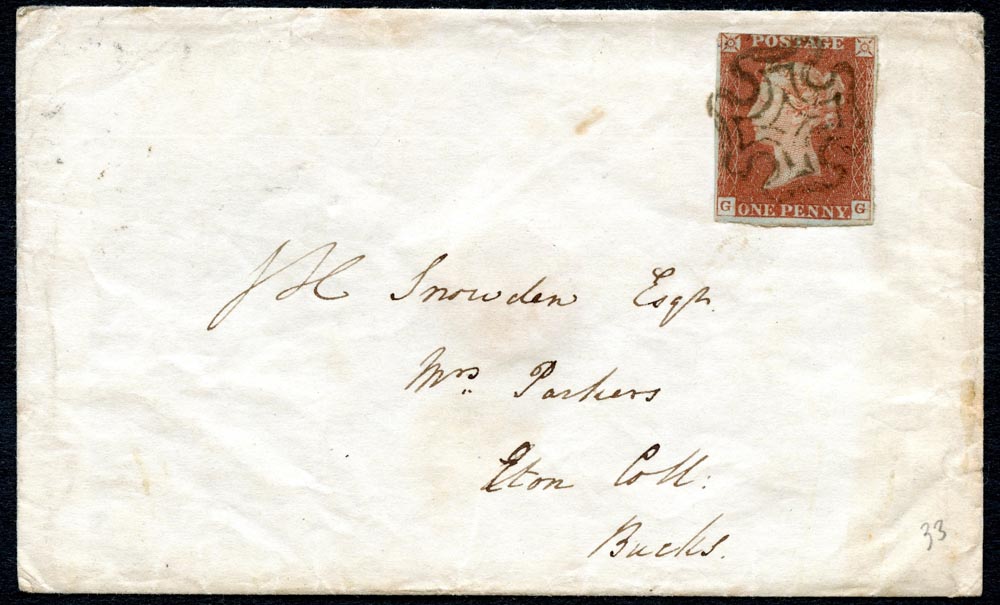 POSTAGE
G ONE PENNY. G
J H Snowden Esqr.
Mrs. Parkers
Eton Coll:
Bucks.
33